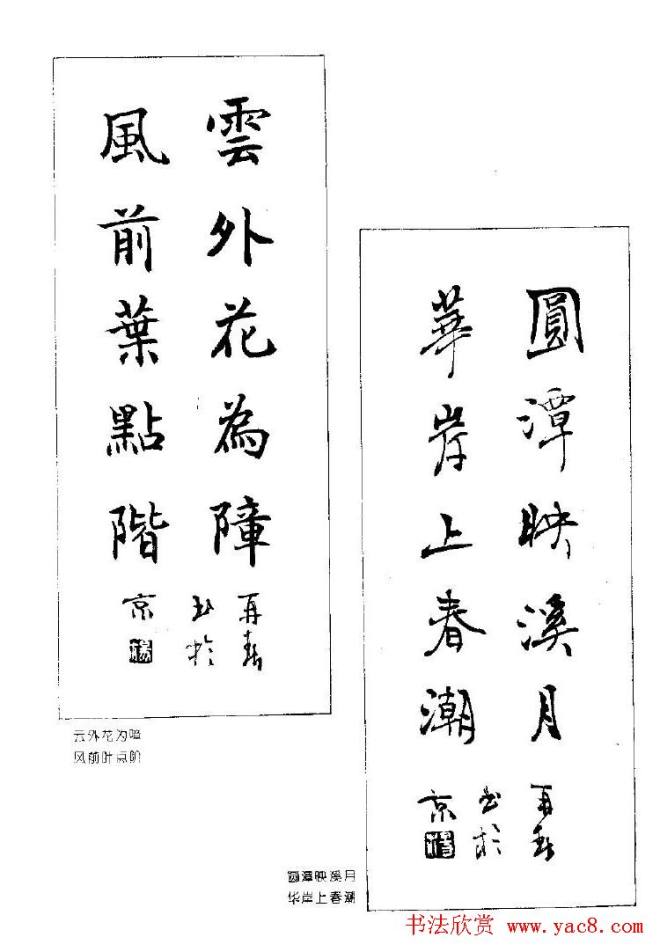 雲外花為障
風前葉點階
再春
书於
京
云外花为障
风前叶点阶
圓潭映溪月
華岸上春潮
再春
书於
京
圆潭映溪月
华岸上春潮
书法欣赏 www.yac8.com